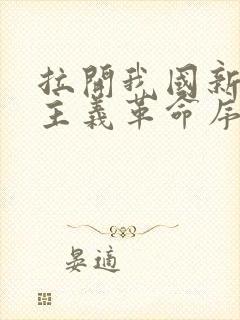 拉開我國新
主義革命序
晏適